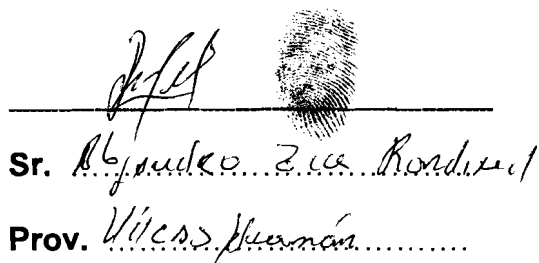 Sr. Alejandro Zea Rondinel
Prov. Vilcas Huamán